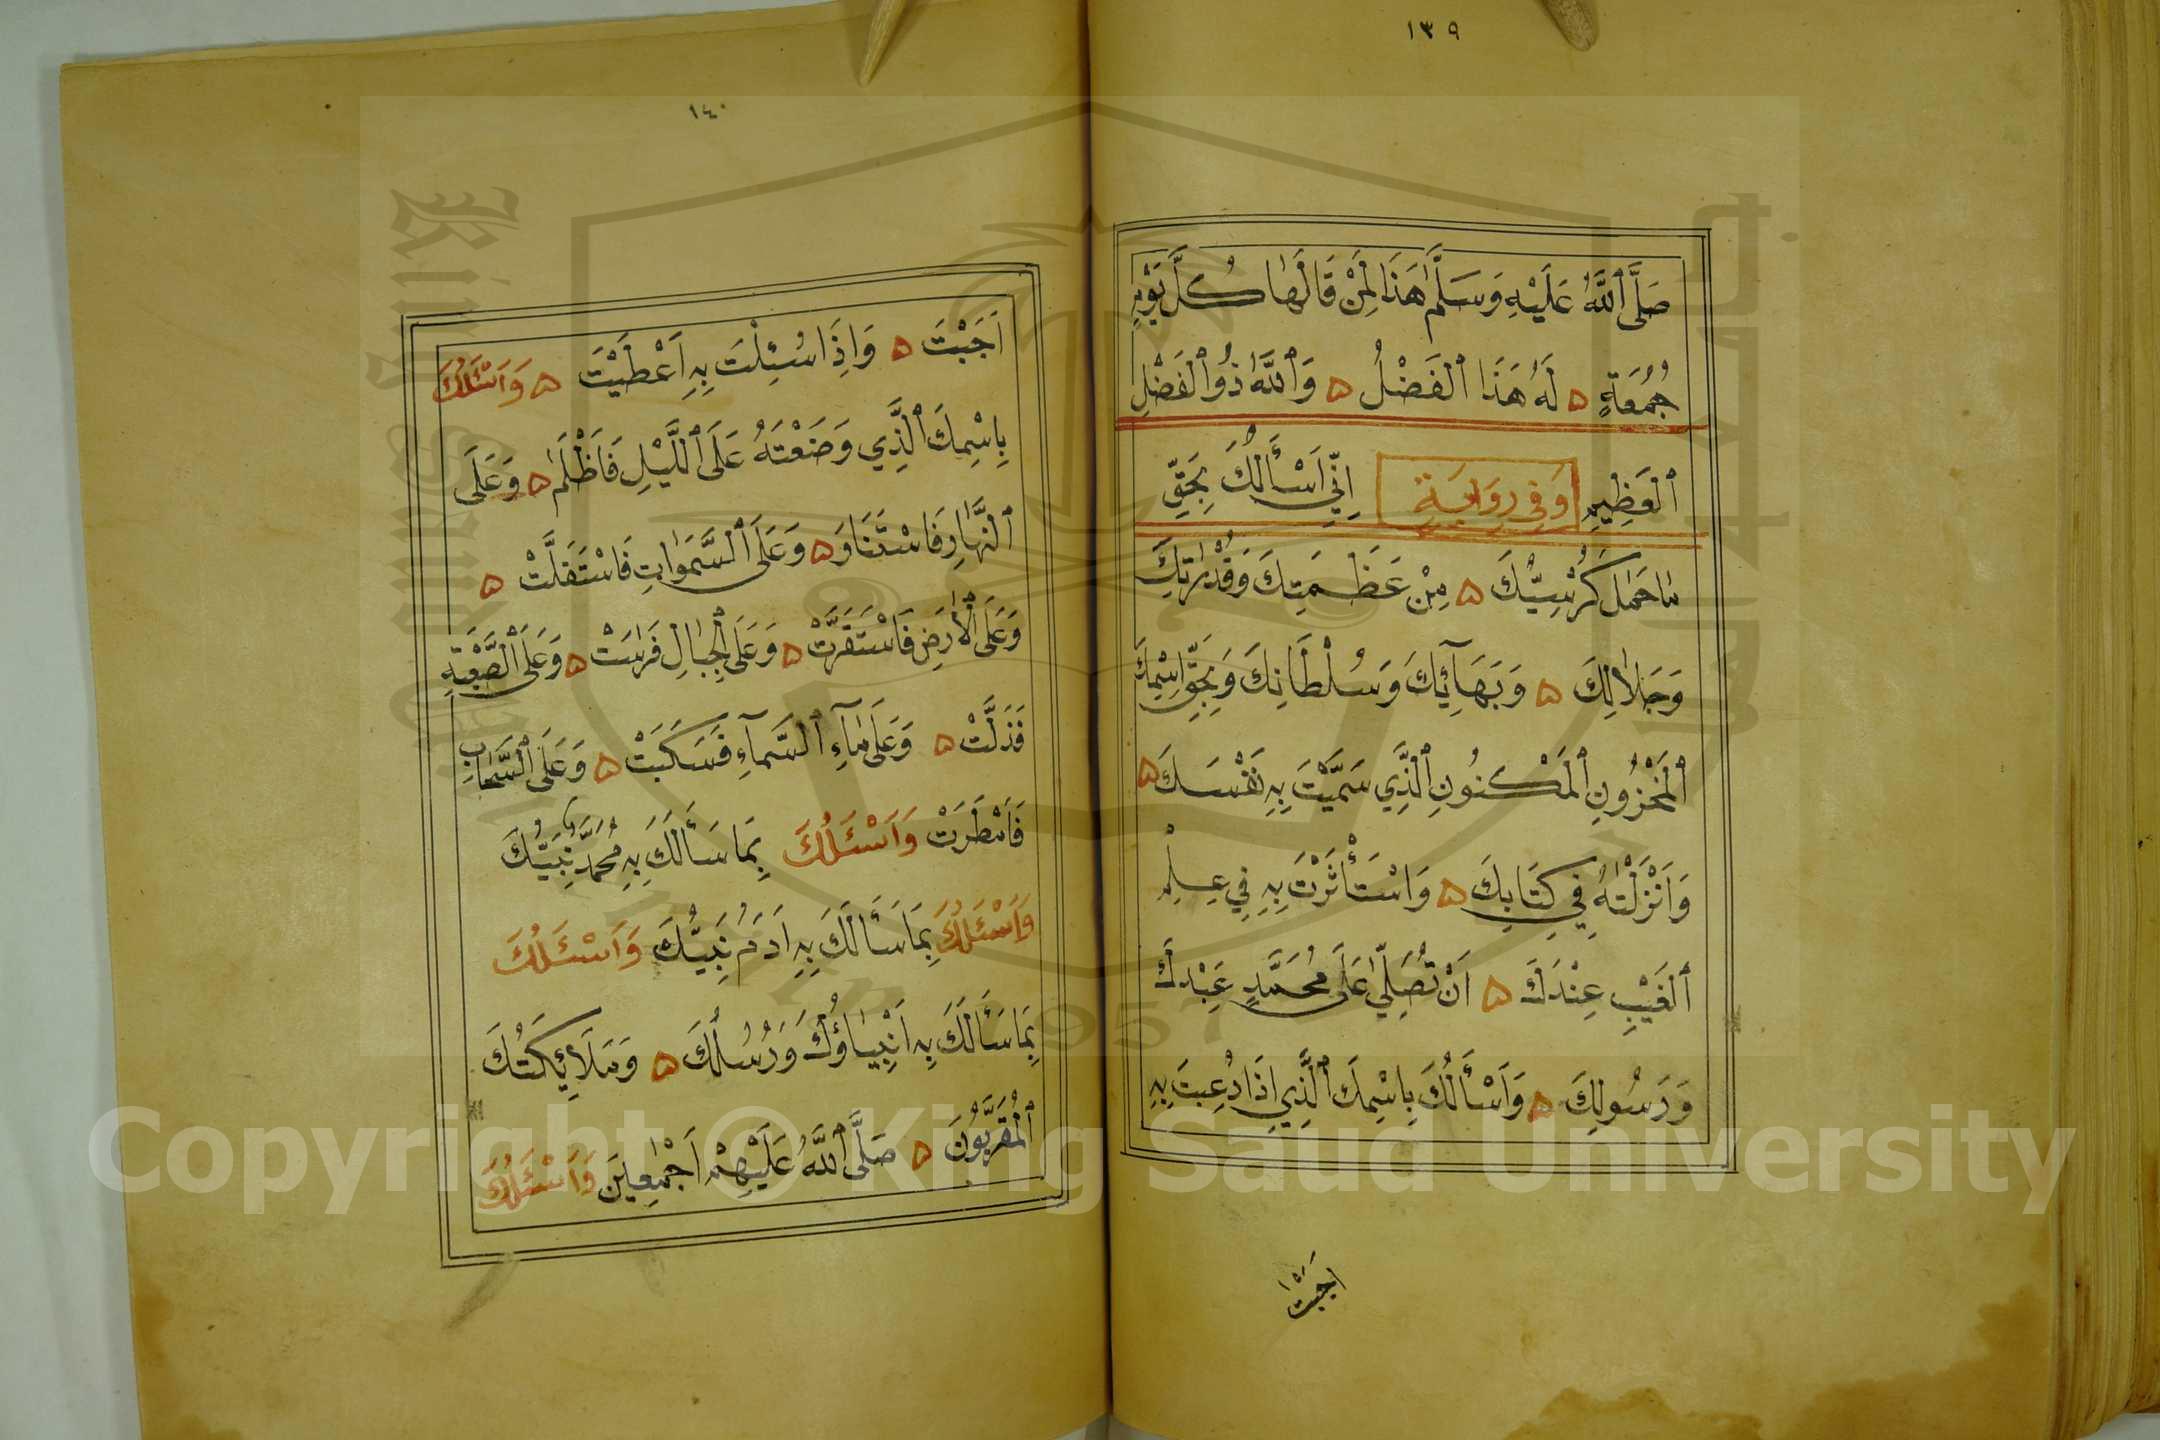 ١٣٩
صَلَّى ٱللَّهُ عَلَيْهِ وَسَلَّمَ هَذَا لِمَنْ قَالَهَا كُلَّ يَوْمِ
جُمُعَةٍ ۵ لَهُ هَذَا ٱلْفَضْلُ ۵ وَٱللَّهُ ذُو ٱلْفَضْلِ
ٱلْعَظِيمِ وَفِي رِوَايَةٍ اِنِّي اَسْأَلُكَ بِحَقِّ
مَا حَمَلَ كُرْسِيُّكَ ۵ مِنْ عَظَمَتِكَ وَقُدْرَتِكَ
وَجَلَالِكَ ۵ وَبَهَآئِكَ وَسُلْطَانِكَ وَبِحَقِّ اِسْمِكَ
ٱلْمَخْزُونِ ٱلْمَكْنُونِ ٱلَّذِي سَمَّيْتَ بِهِ نَفْسَكَ ۵
وَاَنْزَلْتَهُ فِي كِتَابِكَ ۵ وَاسْتَأْثَرْتَ بِهِ فِي عِلْمِ
ٱلْغَيْبِ عِنْدَكَ ۵ اَنْ تُصَلِّيَ عَلَى مُحَمَّدٍ عَبْدِكَ
وَرَسُولِكَ ۵ وَاَسْأَلُكَ بِاسْمِكَ ٱلَّذِي اِذَا دُعِيتَ بِهِ
اجبت
١٤٠
اَجَبْتَ ۵ وَاِذَا سُئِلْتَ بِهِ اَعْطَيْتَ ۵ وَاَسْئَلُكَ
بِاسْمِكَ ٱلَّذِي وَضَعْتَهُ عَلَى ٱللَّيْلِ فَاَظْلَمَ ۵ وَعَلَى
ٱلنَّهَارِ فَاسْتَنَارَ ۵ وَعَلَى ٱلسَّمَوَاتِ فَاسْتَقَلَّتْ ۵
وَعَلَى ٱلْاَرْضِ فَاسْتَقَرَّتْ ۵ وَعَلَى ٱلْجِبَالِ فَرَسَتْ ۵ وَعَلَى ٱلصَّعْبَةِ
فَذَلَّتْ ۵ وَعَلَى مَآءِ ٱلسَّمَآءِ فَسَكَبَتْ ۵ وَعَلَى ٱلسَّحَابِ
فَاَمْطَرَتْ وَاَسْئَلُكَ بِمَا سَأَلَكَ بِهِ مُحَمَّدٌ نَبِيُّكَ
وَاَسْئَلُكَ بِمَا سَأَلَكَ بِهِ اَدَمُ نَبِيُّكَ وَاَسْئَلُكَ
بِمَا سَأَلَكَ بِهِ اَنْبِيَاؤُكَ وَرُسُلُكَ ۵ وَمَلَائِكَتُكَ
ٱلْمُقَرَّبُونَ ۵ صَلَّى ٱللَّهُ عَلَيْهِمْ اَجْمَعِينَ وَاَسْئَلُكَ
Copyright © King Saud University
1957